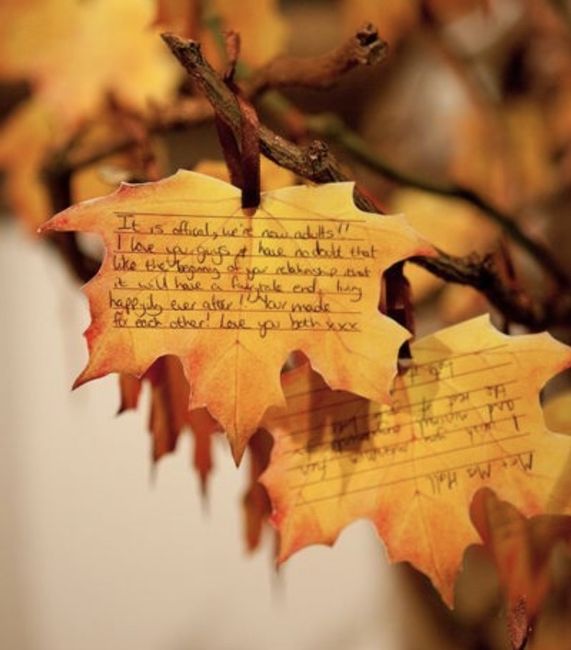 It is offical, we're now adults!!
I love you guys & have no doubt that
like the begining of your relationship that
it will have a fairytale end, living
happyily ever after! Your made
for each other! Love you both xxx
Mr + Mrs Hall
I wish you
and
the rest of